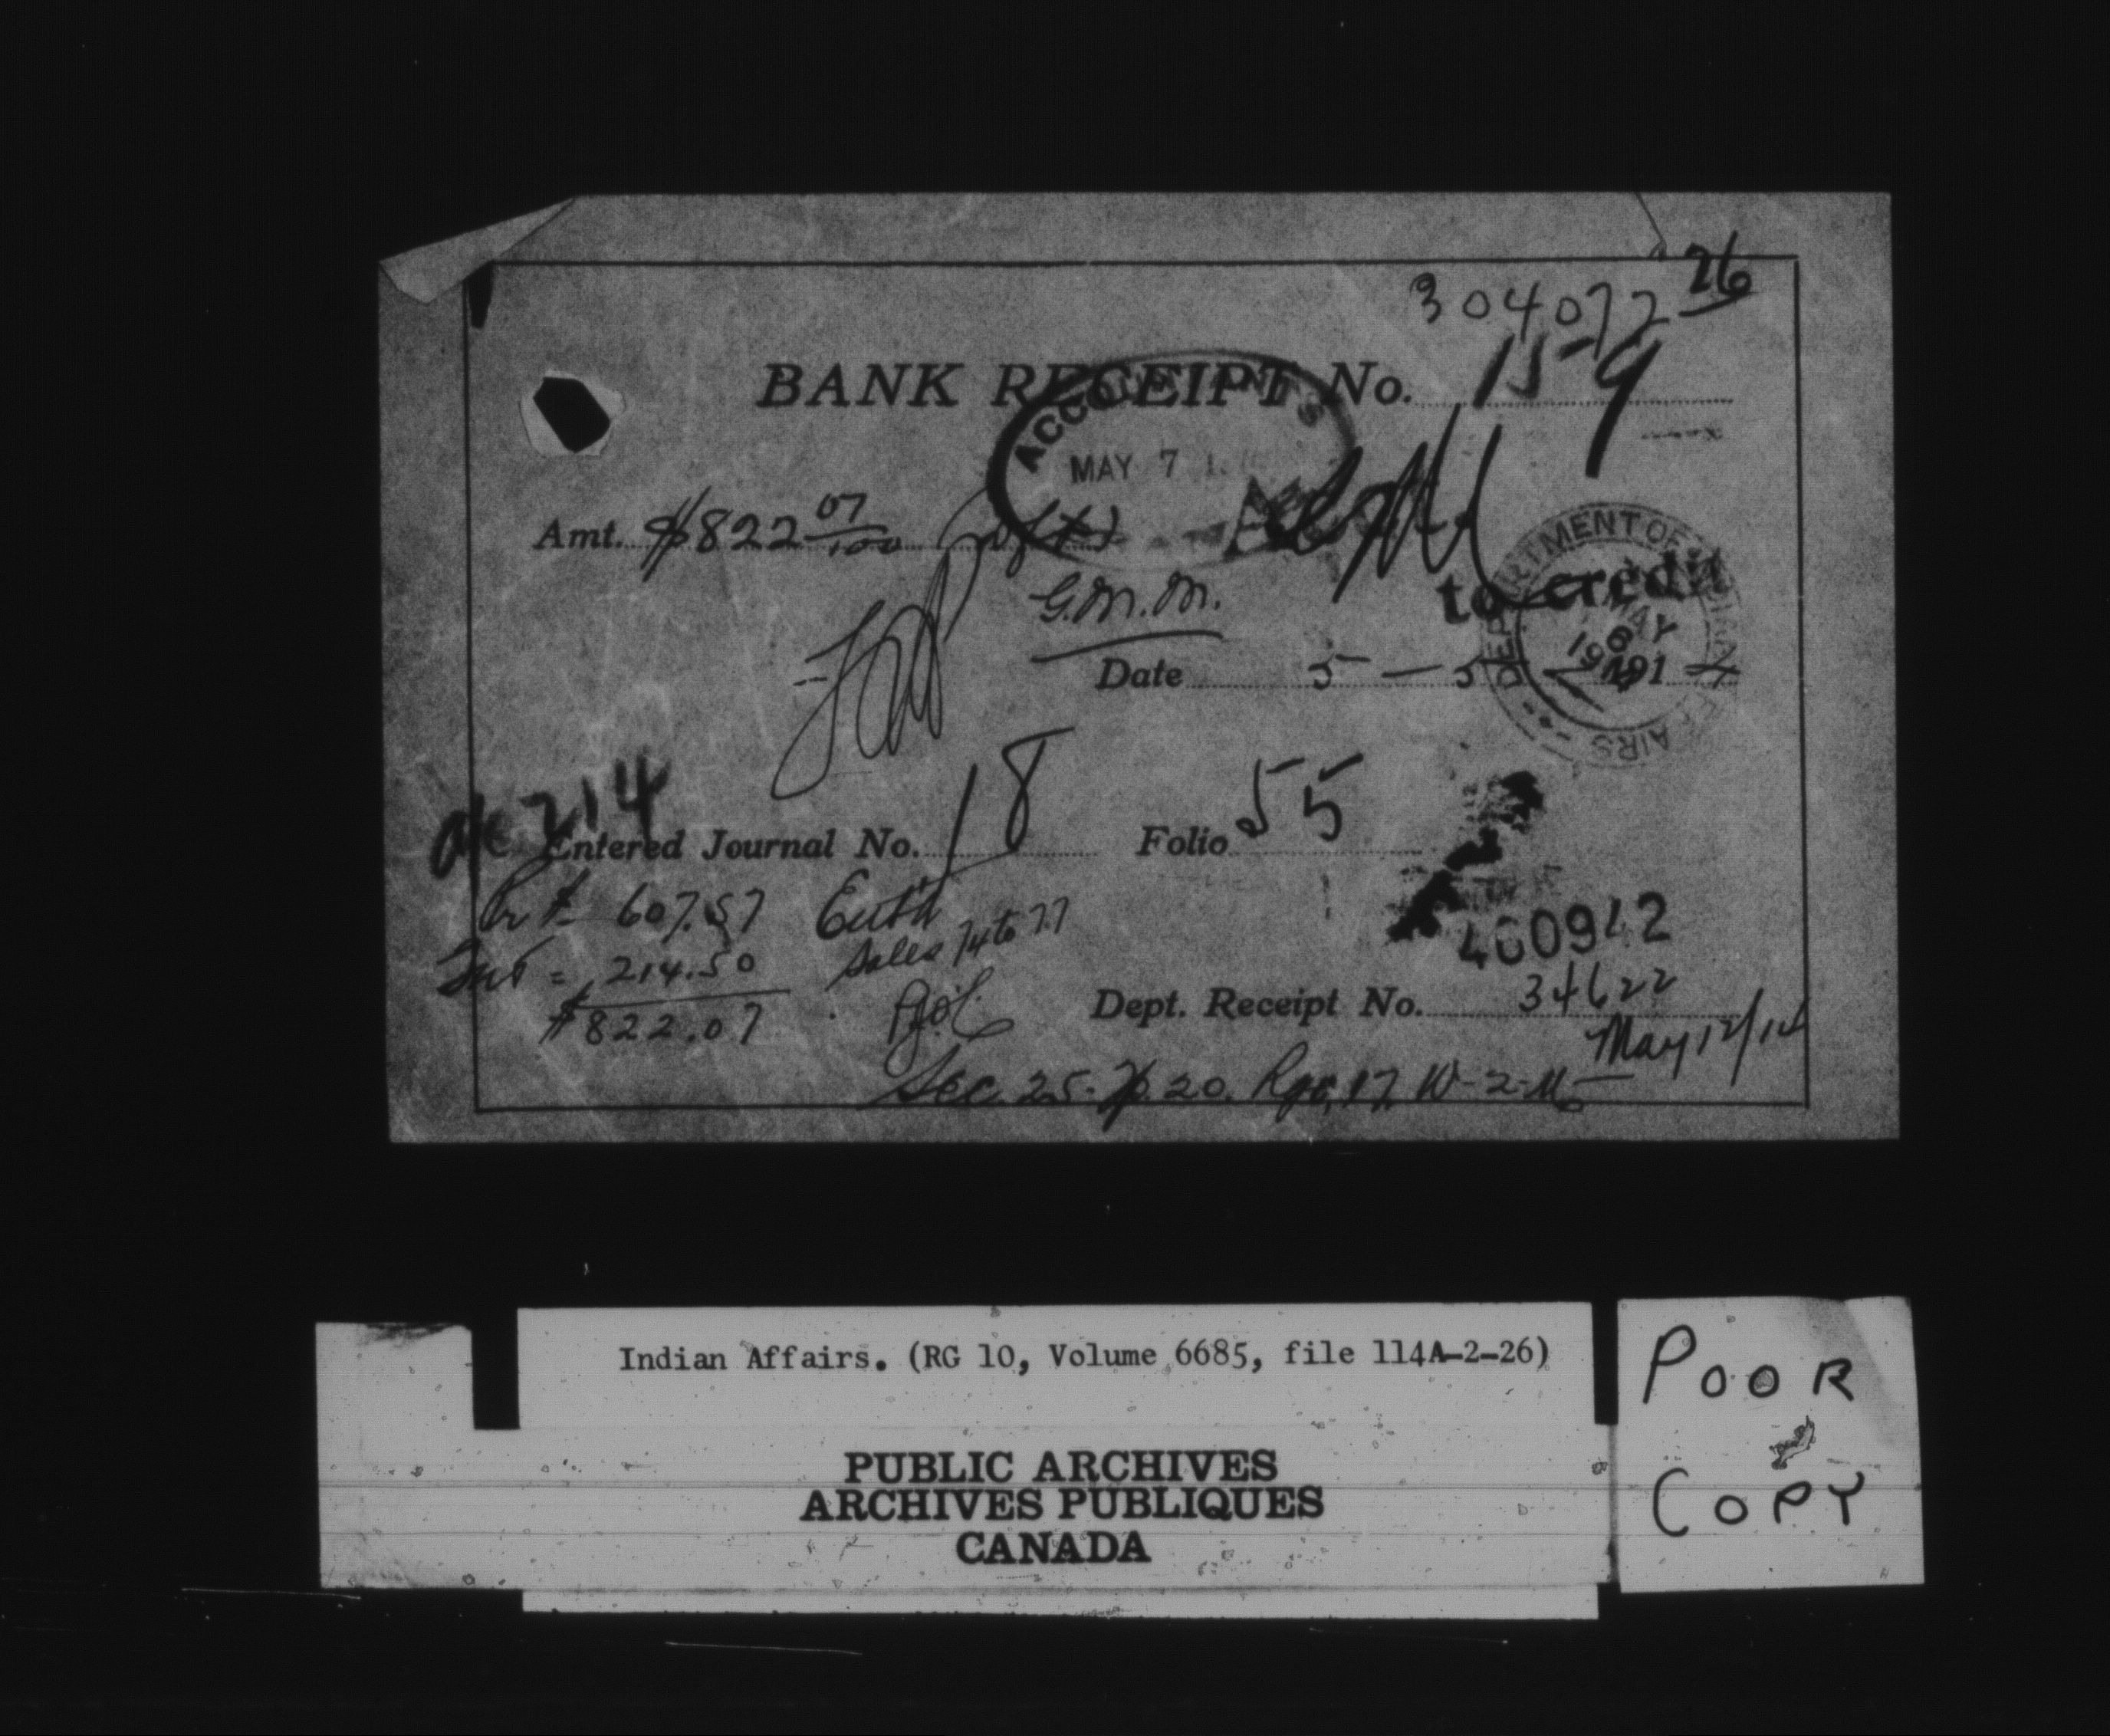 304072 26
BANK RECEIPT No. 159
ACCOUNTANT'S
MAY 7
Amt. $822 07/100
to credit
G.M.M.
DEPARTMENT OF INDIAN AFFAIRS
MAY 6 1914
Date 5 - 5 - 1914
a/c 214
Entered Journal No. 18 Folio 55
Pr't 607.57
Sales 74 to 77
Int = 214.50
460942
$822.07
Dept. Receipt No. 34622
May 12/14
Sec. 25. Tp. 20. Rge. 17 W-2-M
Indian Affairs. (RG 10, Volume 6685, file 114A-2-26)
PUBLIC ARCHIVES
ARCHIVES PUBLIQUES
CANADA
POOR
COPY